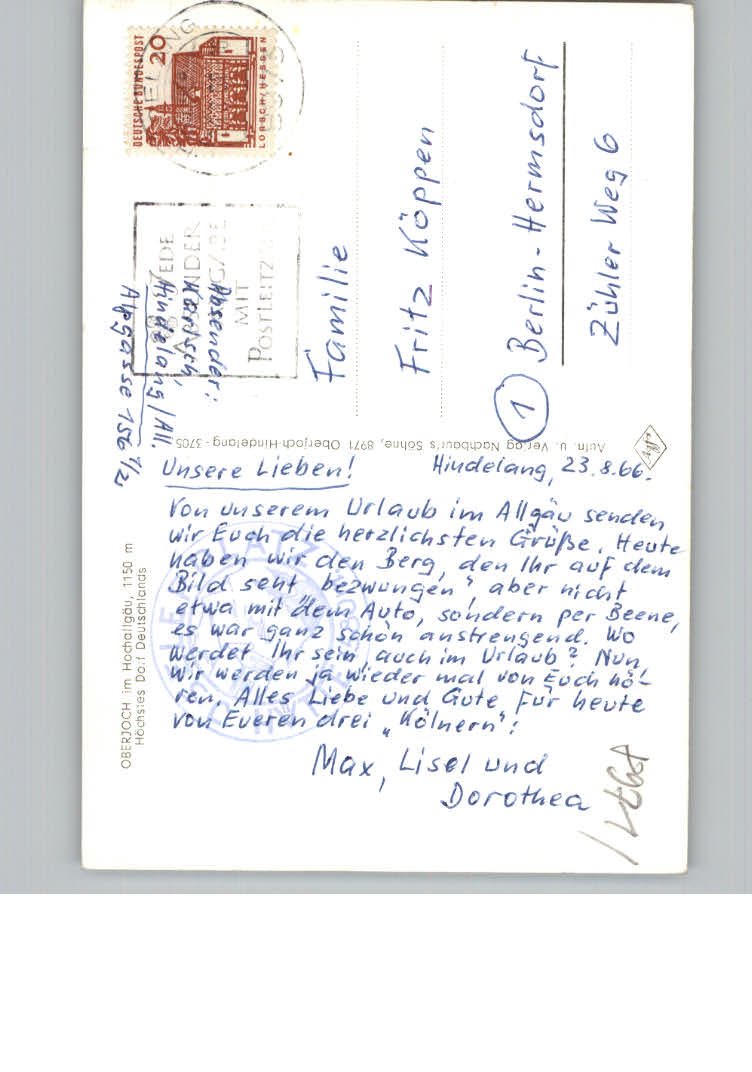 DEUTSCHE BUNDESPOST
20
LORSCH/HESSEN
MIT
POSTLEITZ
Absender:
Hindelang/All.
Alpgasse 156 1/2
Familie
Fritz Köppen
1 Berlin-Hermsdorf
Zühler Weg 6
Aufn. u. Verlag Nachbaur's Söhne, 8971 Oberjoch-Hindelang - 3705
OBERJOCH im Hochallgäu, 1150 m
Höchstes Dorf Deutschlands
Hindelang, 23.8.66.
Unsere Lieben!
Von unserem Urlaub im Allgäu senden
wir Euch die herzlichsten Grüße. Heute
haben wir den Berg, den Ihr auf dem
Bild seht "bezwungen", aber nicht
etwa mit dem Auto, sondern per Beene,
es war ganz schön anstrengend. Wo
werdet Ihr sein, auch im Urlaub? Nun,
wir werden ja wieder mal von Euch hö-
ren. Alles Liebe und Gute für heute
von Eueren drei „Kölnern":
Max, Lisel und
Dorothea